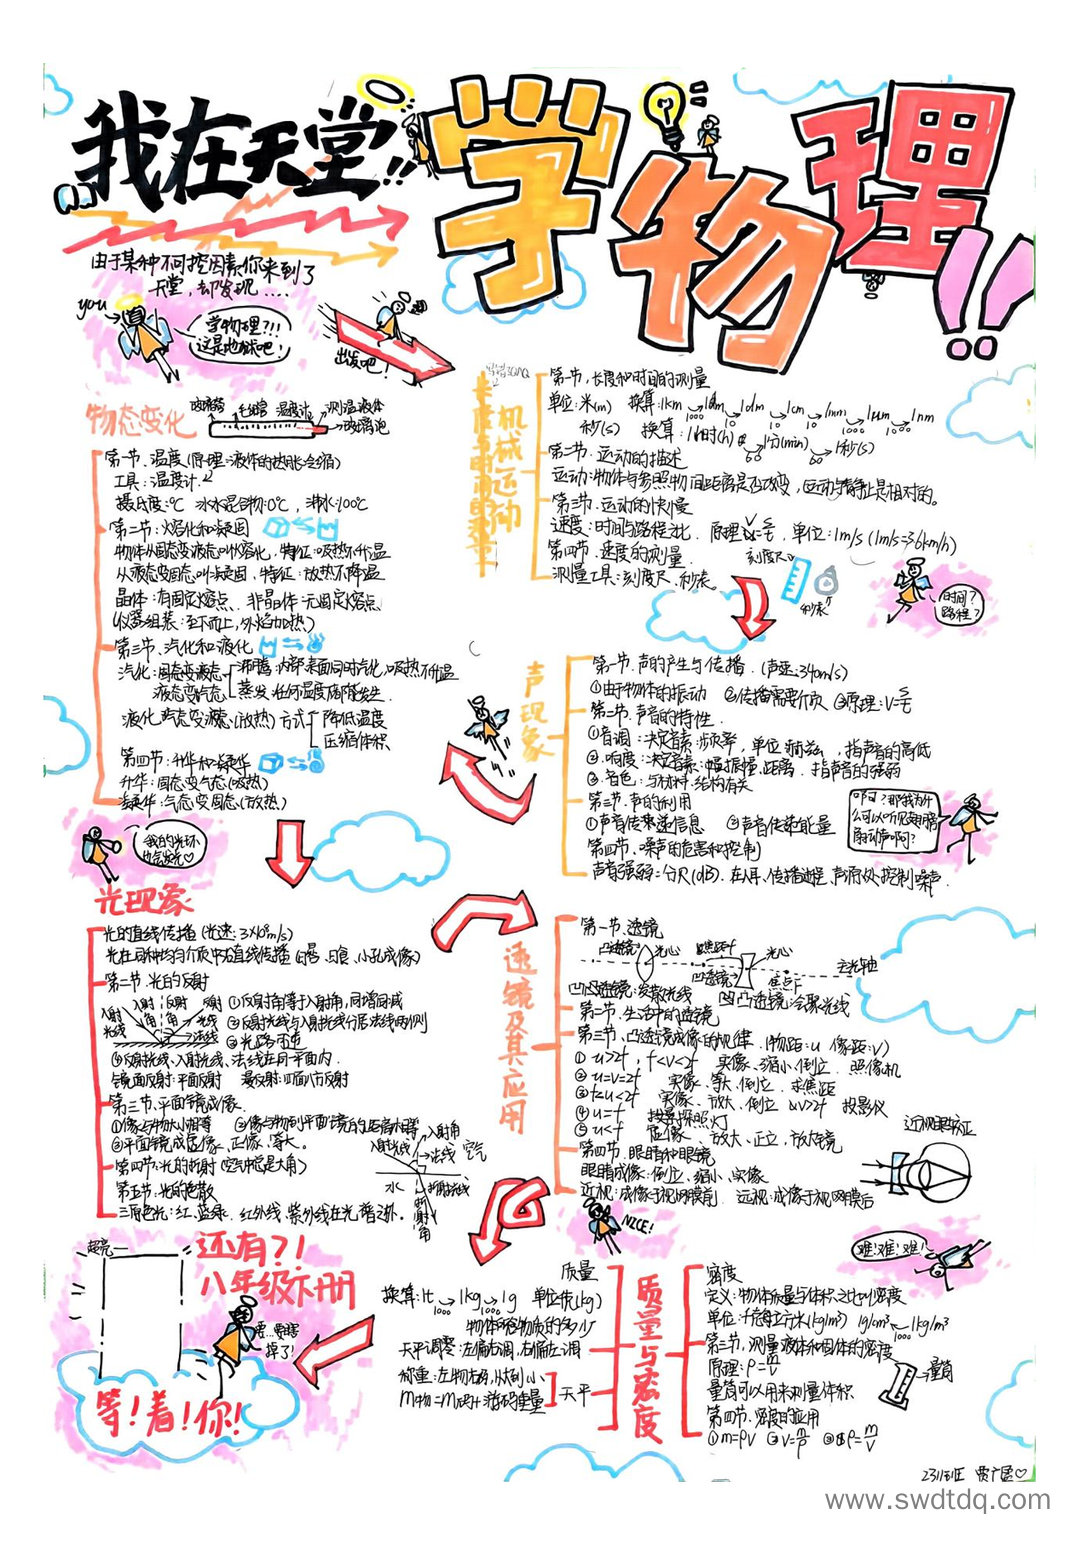 我在天堂!!
学物理!!
由于某种不可控因素你来到了
天堂，却发现....
you
学物理?!!
这是地狱吧!
出发吧!
物态变化
玻璃管 毛细管 温度计 测温液体
玻璃泡
第一节.温度(原理:液体的热胀冷缩)
工具:温度计.
摄氏度:℃ 冰水混合物:0℃, 沸水:100℃
第二节:熔化和凝固
物体从固态变液态叫熔化，特征:吸热不升温
从液态变固态叫凝固，特征:放热不降温
晶体:有固定熔点、非晶体:无固定熔点
仪器组装:至下而上，外焰加热)
第三节.汽化和液化
汽化:固态变液态 沸腾:内部表面同时汽化,吸热不升温
液态变气态 蒸发:任何温度
液化 (放热)方式 降低温度
压缩体积
第四节:升华和凝华
升华:固态变气态(吸热)
凝华:气态变固态(放热)
我的光环
光现象
光的直线传播(光速:3×10⁸m/s)
光在同种均匀介质中沿直线传播(日食、小孔成像)
第二节.光的反射
入射光线 入射角 反射角 法线
①反射角等于入射角,同增同减
②反射光线与入射光线分居法线两侧
③光路可逆
④反射光线、入射光线、法线在同一平面内.
镜面反射:平面反射 漫反射:四面八方反射
第三节.平面镜成像.
①像与物大小相等 ②像与物到平面镜的距离相等
③平面镜成虚像、正像、等大。
第四节:光的折射(空气中总是大角)
第五节:光的色散
三原色光:红、蓝绿、红外线、紫外线在光谱之外。
入射光线 入射角
法线 空气
水 折射光线
折射角
机械运动
长度与时间的测量
第一节,长度和时间的测量
单位:米(m) 换算:1km 1000 1m 10 1dm 10 1cm 10 1mm 1000 1μm 1000 1nm
秒(s) 换算:1小时(h) 60 1分(min) 60 1秒(s)
第二节.运动的描述
运动:物体与参照物间距离是否改变，运动与静止是相对的。
第三节.运动的快慢
速度:时间与路程之比, 原理 单位:1m/s (1m/s=3.6km/h)
第四节.速度的测量.
测量工具:刻度尺、秒表。
刻度尺
秒表
时间?
路程?
声现象
第一节.声的产生与传播.(声速:340m/s)
①由于物体的振动 ②传播需要介质 ③原理:v=s/t
第二节.声音的特性.
①音调:决定音素:频率,单位:赫兹,指声音的高低
②.响度:决定音素:振幅,距离.指声音的强弱
③.音色:与材料、结构有关
第三节.声的利用
①声音传递信息 ②声音传递能量
第四节.噪声的危害和控制
声音强弱=分贝(dB). 在人耳、传播过程、声源处控制噪声.
啊?那我为什
么可以听见翅膀
扇动声啊?
透镜及其应用
第一节.透镜
凸透镜 光心 焦距f 光心 主光轴
凹透镜 焦点F
凹透镜:发散光线 凸透镜:会聚光线
第二节.生活中的透镜
第三节.凸透镜成像的规律.(物距:u 像距:v)
① u>2f, f<v<2f 实像、缩小、倒立、照像机
② u=v=2f 实像、等大、倒立、求焦距
③ f<u<2f 实像、放大、倒立 v>2f 投影仪
④ u=f 探照灯
⑤ u<f 虚像、放大、正立、放大镜
第四节.眼睛和眼镜
眼睛成像:倒立、缩小、实像
近视:成像于视网膜前 远视:成像于视网膜后
近视眼矫正
NICE!
难!难!难!
质量与密度
质量
换算:1t 1000 1kg 1000 1g 单位:千克(kg)
物体所含物质的多少
天平调零:左偏右调,右偏左调
称重:左物右码,从大到小
m物=m砝码+游码重量
天平
密度
定义:物体质量与体积之比叫密度
单位:千克每立方米(kg/m³) 1g/cm³ 1000 1kg/m³
第三节.测量液体和固体的密度
原理:ρ=m/v
量筒可以用来测量体积
量筒
第四节.密度的应用
①m=ρv ②v=m/ρ ③ρ=m/v
还有?!
八年级下册
等!着!你!
2311班
www.swdtdq.com